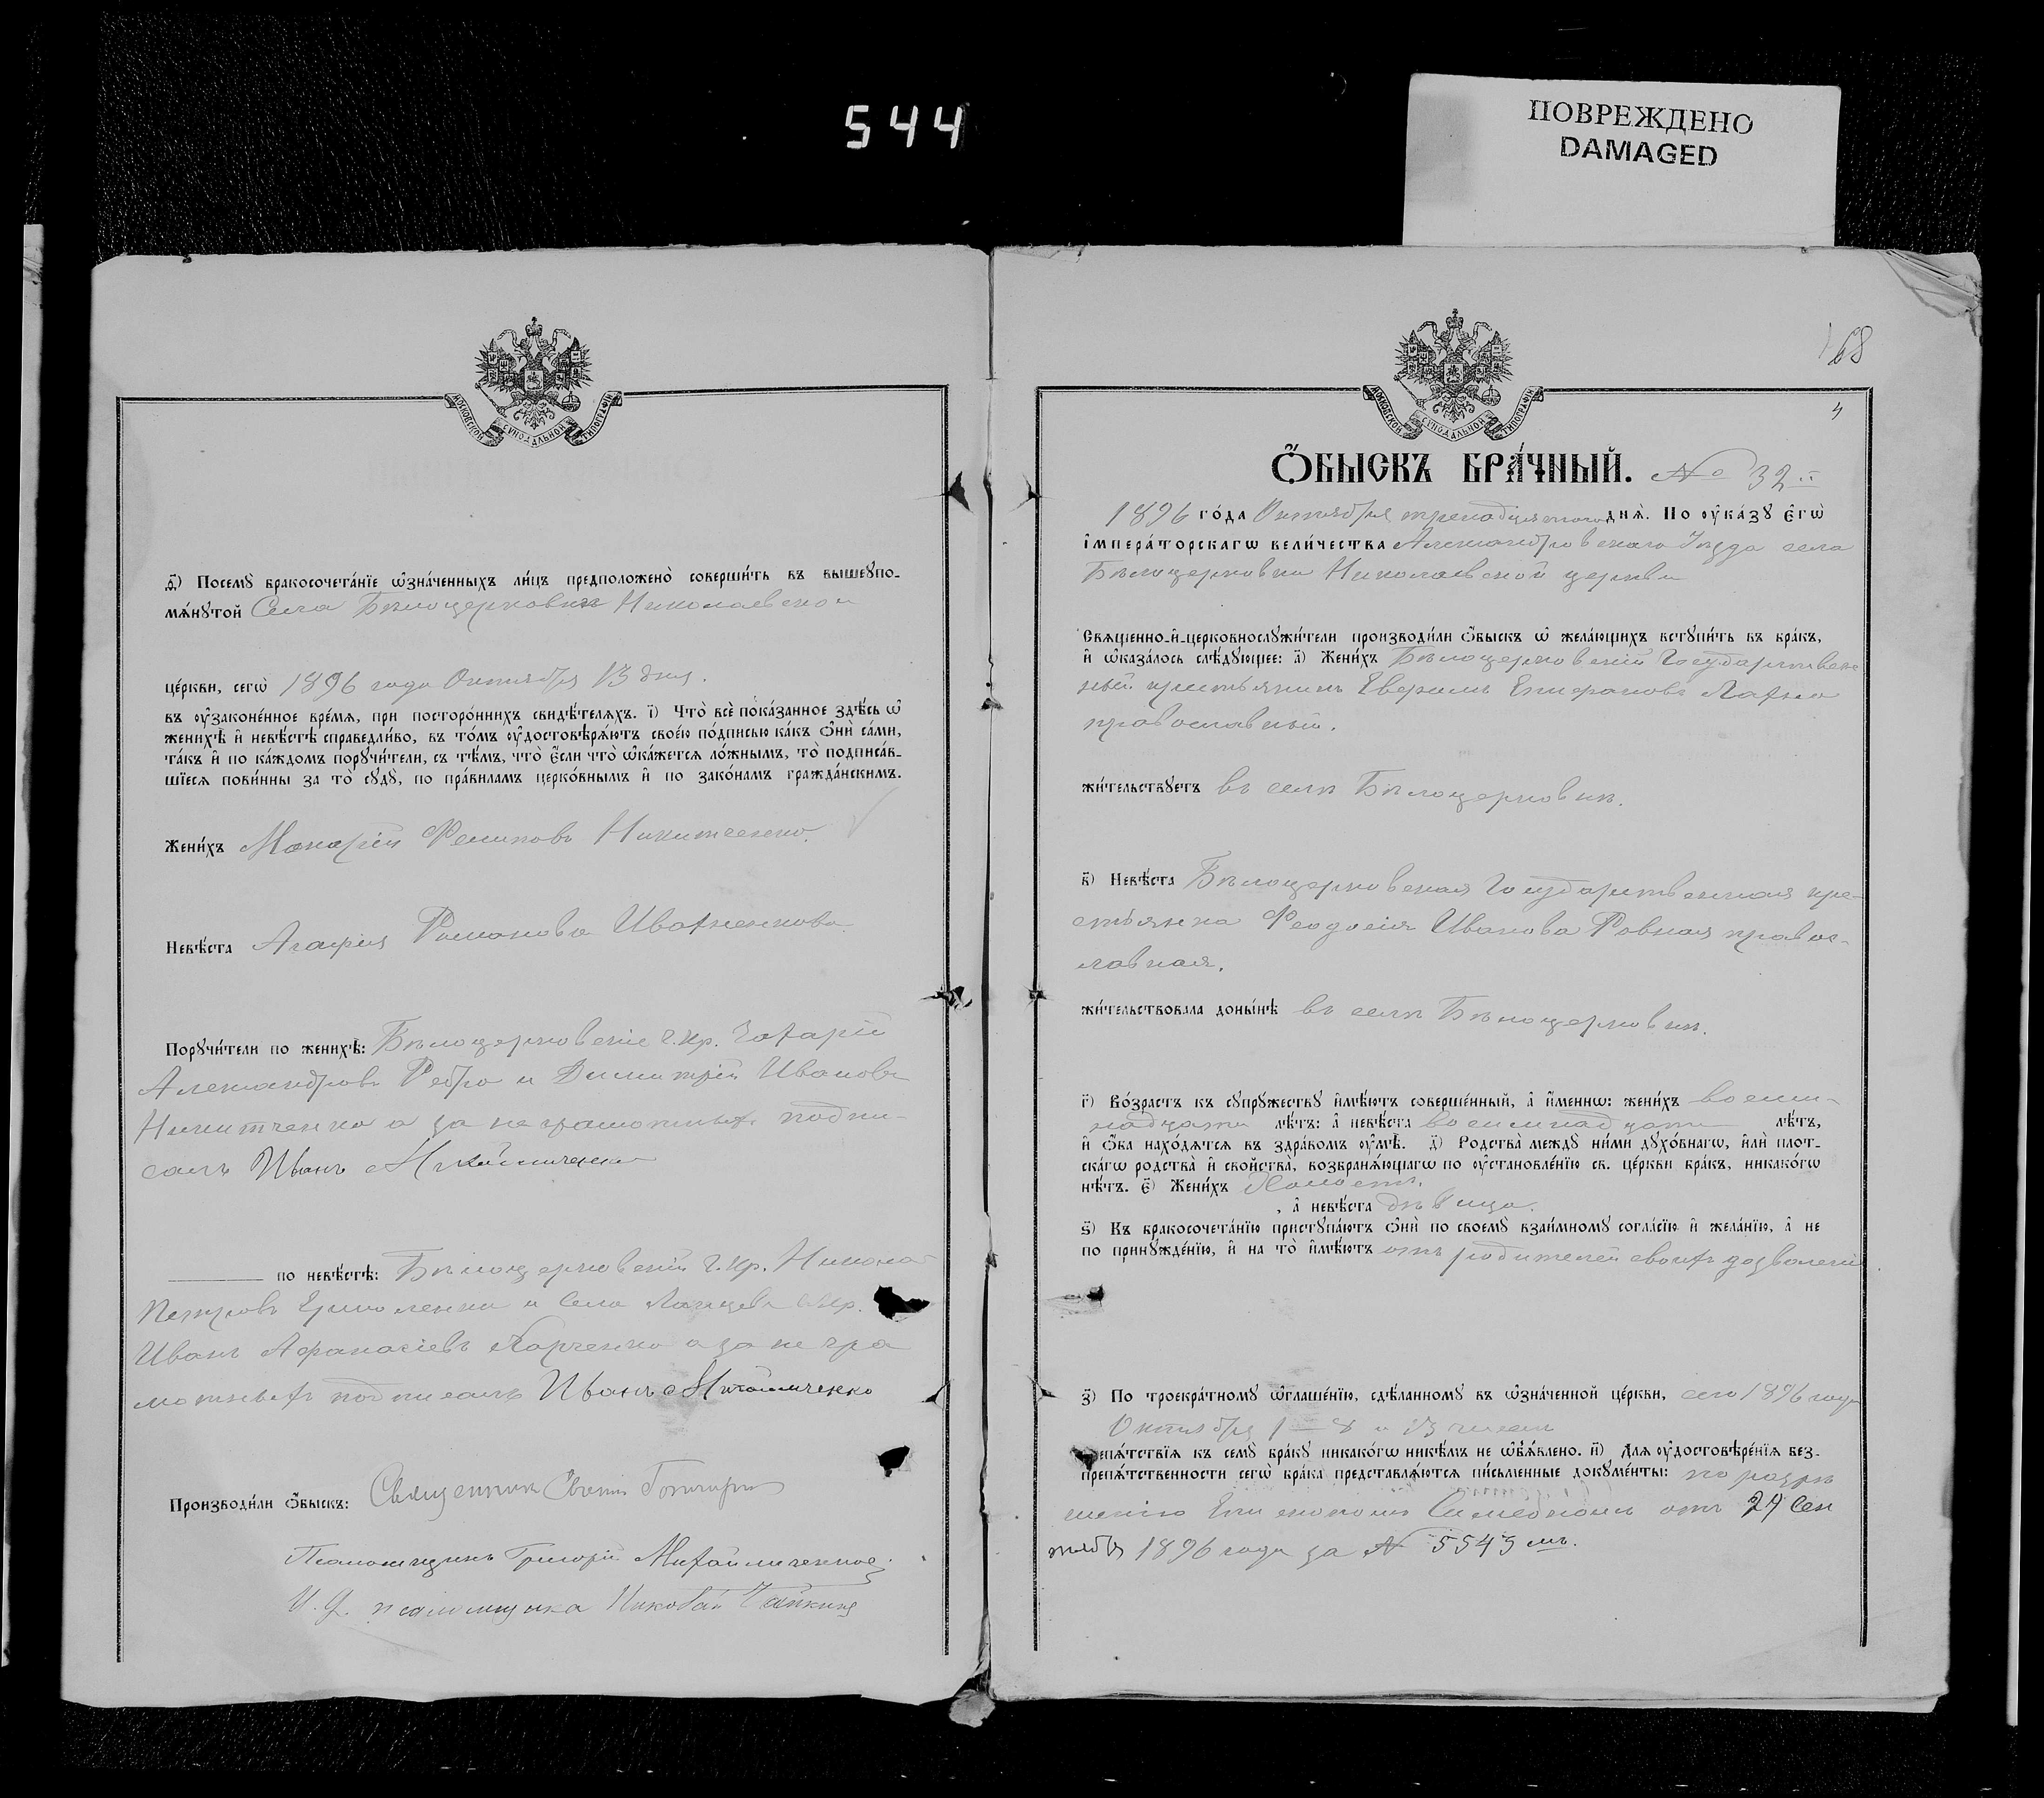 544
ПОВРЕЖДЕНО
DAMAGED
МОСКОВСКОЙ СУНОДАЛЬНОЙ ТИПОГРАФІИ
д҃і) Посемꙋ̀ бракосочета́нїе ѡ҆зна́ченныхъ ли́цъ предположено̀ соверши́ть въ вышеꙋпо-
мѧ́нꙋтой Села Бѣлоцерковки Николаевской
це́ркви, сегѡ̀ 1896 года Октября 13 дня.
въ ᲂу҆законе́нное вре́мѧ, при посторо́ннихъ свидѣ́телѧхъ. і҃) Что̀ всѐ пока́занное здѣ́сь ѡ҆
женихѣ̀ и҆ невѣ́стѣ справедли́во, въ то́мъ ᲂу҆достовѣрѧ́ютъ свое́ю по́дписью ка́къ ѻ҆нѝ са́ми,
та́къ и҆ по ка́ждомъ порꙋчи́тели, съ тѣ́мъ, что̀ є҆́сли что̀ ѡ҆ка́жетсѧ ло́жнымъ, то̀ подписа́в-
шїесѧ пови́нны за то̀ сꙋдꙋ̀, по пра́виламъ церко́внымъ и҆ по зако́намъ гражда́нскимъ.
Жени́хъ Макарій Филиповъ Никитченко.
Невѣ́ста Агафія Романова Ивахненкова
Порꙋчи́тели по женихѣ̀: Бѣлоцерковскіе г. кр. Захарій
Александровъ Ребро и Димитрій Ивановъ
Никитченко а за неграмотныхъ подпи-
салъ Иванъ Михайличенко
по невѣ́стѣ: Бѣлоцерковскій г. кр. Никола
Петровъ Ермоленко и села кр.
Иванъ Афанасіевъ Харченко а за негра
мотныхъ подписалъ Иванъ Михайличенко
Производи́ли ѻ҆́быскъ: Священникъ
Псаломщикъ Григорій Михайличенко
И. д. псаломщика Николай Чайкинъ
168
4
МОСКОВСКОЙ СУНОДАЛЬНОЙ ТИПОГРАФІИ
Ѻ҆́БЫСКЪ БРА́ЧНЫЙ. № 32
1896 го́да Октября тринадцатаго днѧ̀. По ᲂу҆ка́зꙋ є҆гѡ̀
і҆мпера́торскагѡ вели́чества Александровскаго Уѣзда села
Бѣлоцерковки Николаевской церкви
Свѧще́нно-и҆-церковнослꙋжи́тели производи́ли ѻ҆́быскъ ѡ҆ жела́ющихъ встꙋпи́ть въ бра́къ,
и҆ ѡ҆каза́лось слѣ́дꙋющее: а҃) Жени́хъ Бѣлоцерковскій Государствен
ный крестьянинъ Епифановъ Лахно
православный.
жи́тельствꙋетъ въ селѣ Бѣлоцерковкѣ.
в҃) Невѣ́ста Бѣлоцерковская Государственная кре-
стьянка Феодосія Иванова Ровная правос-
лавная.
жи́тельствовала доны́нѣ въ селѣ Бѣлоцерковкѣ.
г҃) Во́зрастъ къ сꙋпрꙋ́жествꙋ и҆мѣ́ютъ соверше́нный, а҆ и҆́меннѡ: жени́хъ восем-
надцати лѣ́тъ: а҆ невѣ́ста восемнадцати лѣ́тъ,
и҆ ѻ҆́ба нахо́дѧтсѧ въ здра́вомъ ᲂу҆мѣ̀. д҃) Родства̀ междꙋ̀ ни́ми дꙋхо́внагѡ, и҆лѝ плот-
ска́гѡ родства̀ и҆ сво́йства̀, возбранѧ́ющагѡ по ᲂу҆становле́нїю св. це́ркви бра́къ, никако́гѡ
нѣ́тъ. є҃) Жени́хъ Холостъ,
, а҆ невѣ́ста дѣвица.
ѕ҃) Къ бракосочета́нїю пристꙋпа́ютъ ѻ҆нѝ по своемꙋ̀ взаи́мномꙋ согла́сїю и҆ жела́нїю, а҆ не
по принꙋжде́нїю, и҆ на то̀ и҆мѣ́ютъ отъ родителей своихъ дозволеніе
з҃) По троекра́тномꙋ ѡ҆глаше́нїю, сдѣ́ланномꙋ въ ѡ҆зна́ченной це́ркви, сего 1896 года
Октября 1 8 и 13 чиселъ
препѧ́тствїѧ къ семꙋ̀ бра́кꙋ никако́гѡ никѣ́мъ не ѡ҆б̾ѧ́влено. и҃) Длѧ ᲂу҆достовѣре́нїѧ без-
препѧ́тственности сегѡ̀ бра́ка представлѧ́ютсѧ пи́сьменные докꙋме́нты: по разрѣ
шенію Епископомъ Симеономъ отъ 29 Сен
тября 1896 года за № 5543 мъ.